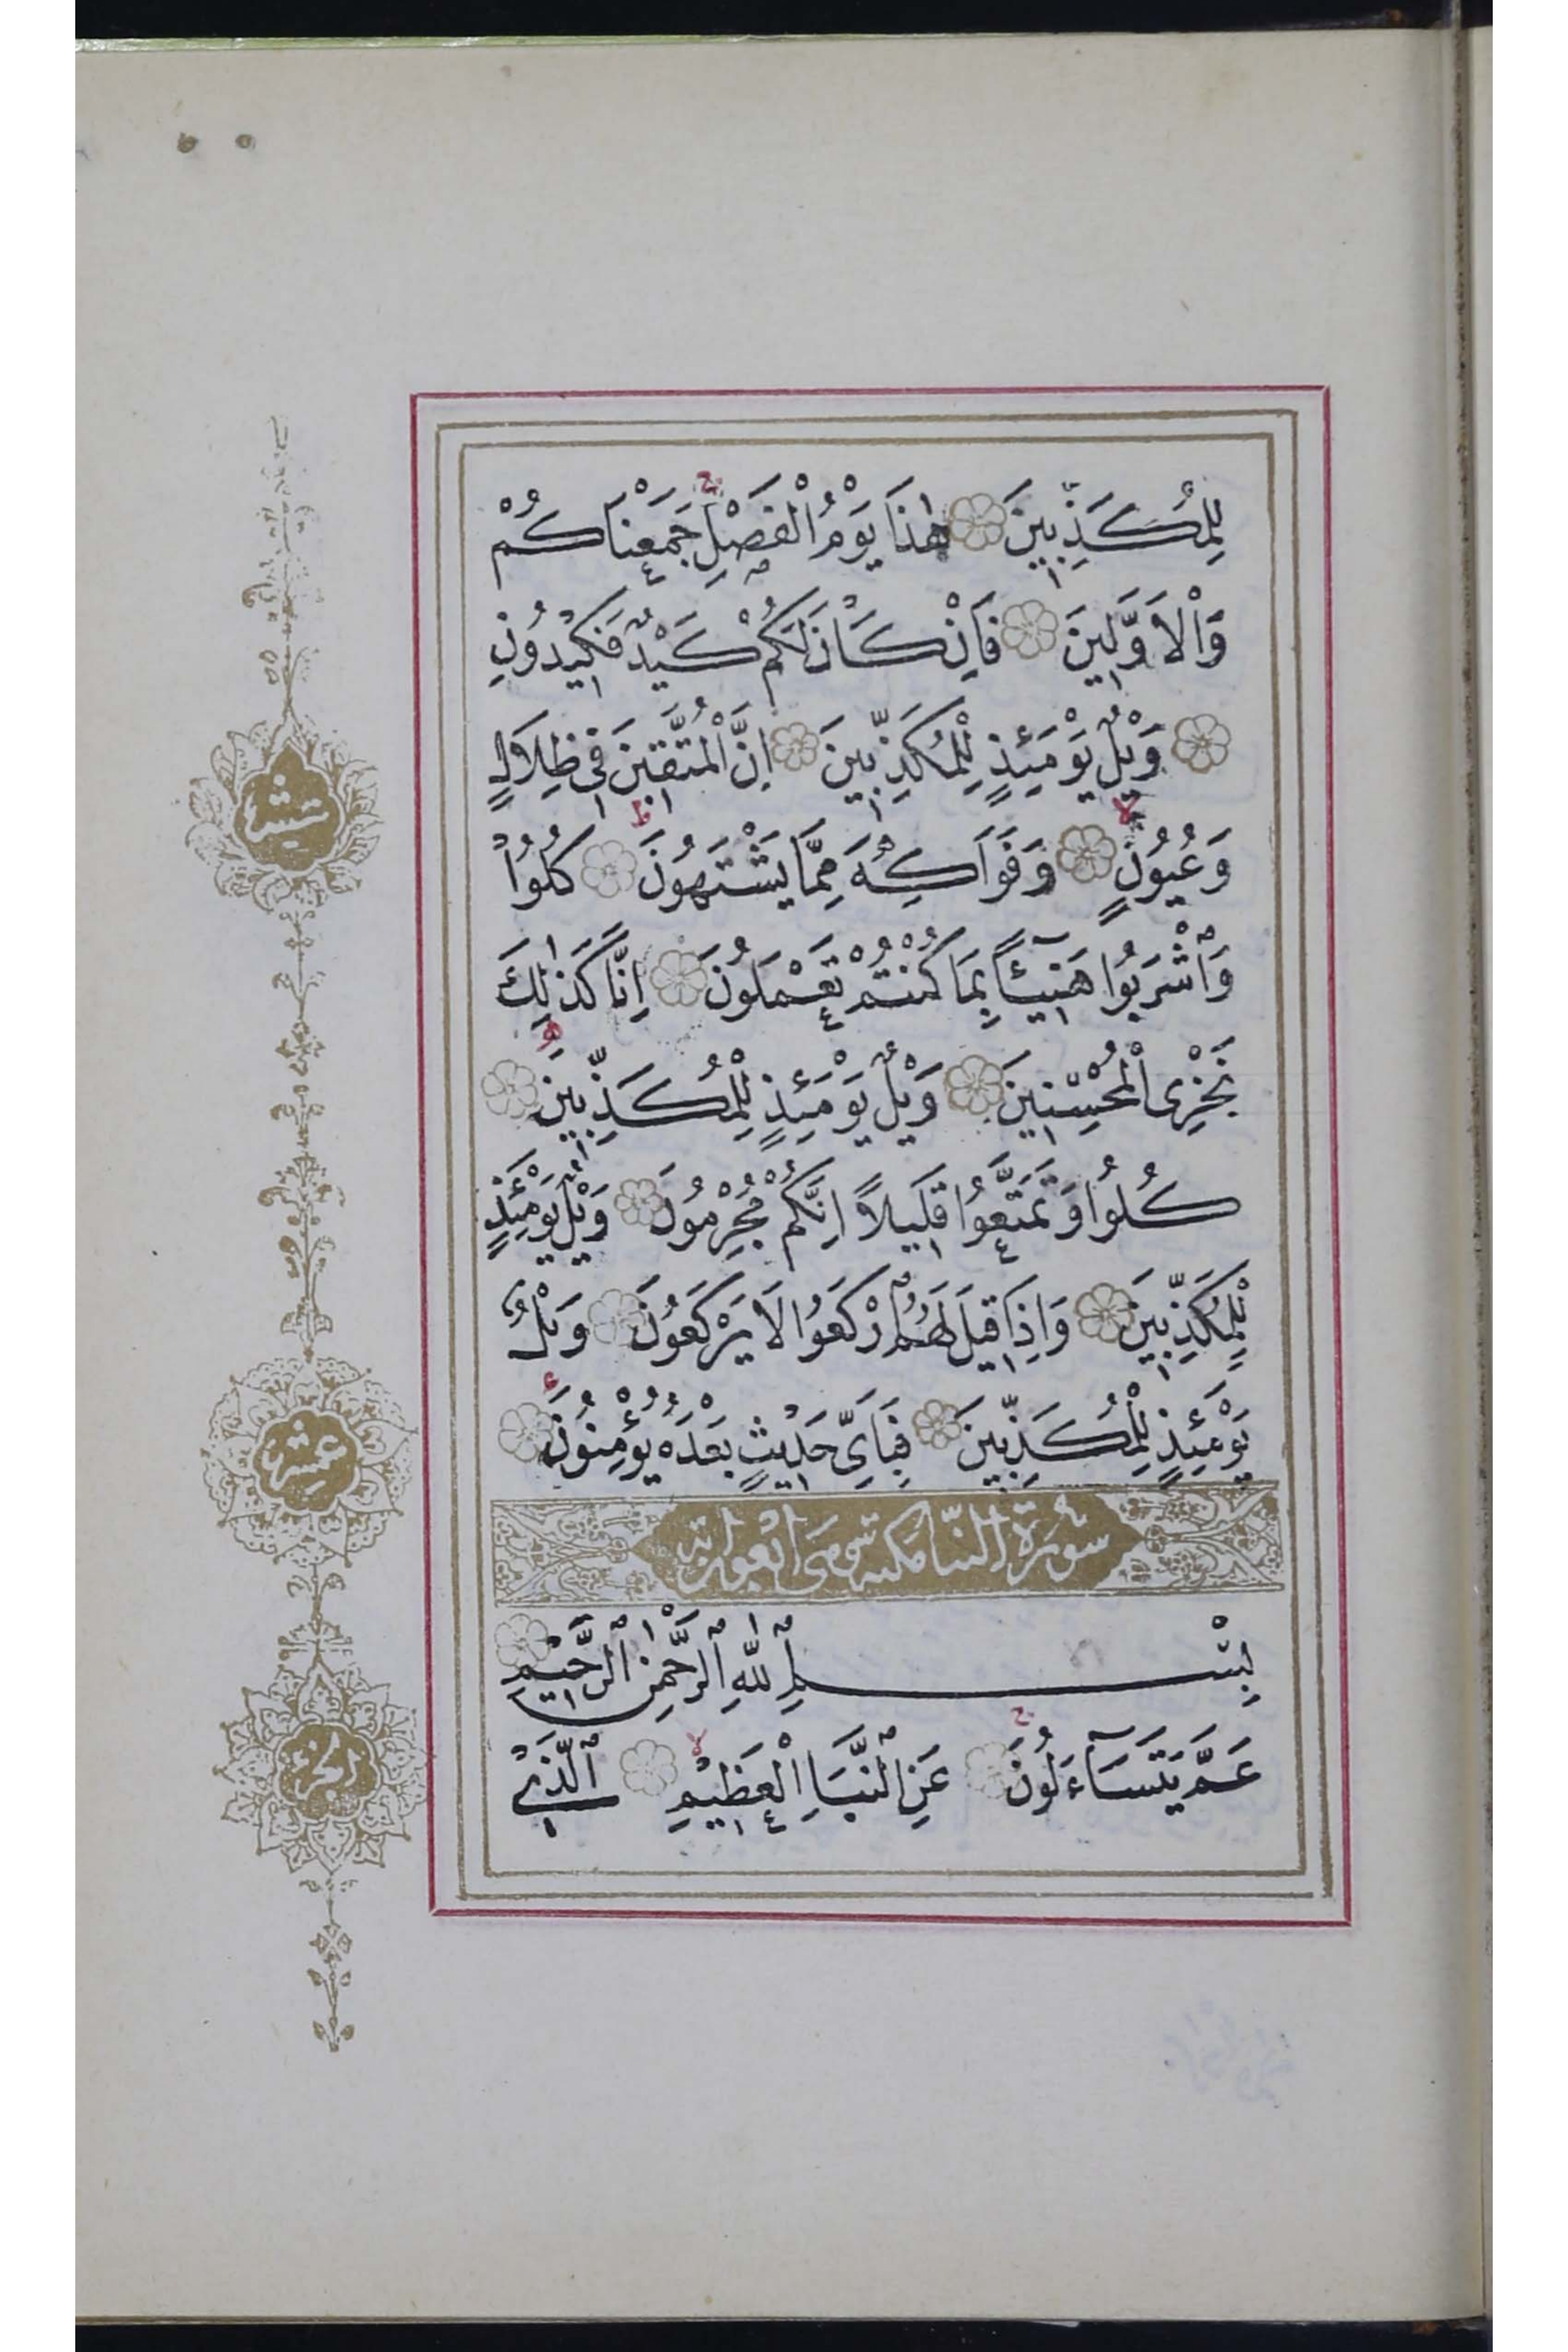 لِلْمُكَذِّبِينَ هٰذَا يَوْمُ الْفَصْلِ جَمَعْنَاكُمْ
وَالْاَوَّلِينَ فَاِنْ كَانَ لَكُمْ كَيْدٌ فَكِيدُونِ
وَيْلٌ يَوْمَئِذٍ لِلْمُكَذِّبِينَ اِنَّ الْمُتَّقِينَ فِى ظِلَالٍ
وَعُيُونٍ وَفَوَاكِهَ مِمَّا يَشْتَهُونَ كُلُوا
وَاشْرَبُوا هَنِيـًٔا بِمَا كُنْتُمْ تَعْمَلُونَ اِنَّا كَذٰلِكَ
نَجْزِى الْمُحْسِنِينَ وَيْلٌ يَوْمَئِذٍ لِلْمُكَذِّبِينَ
كُلُوا وَتَمَتَّعُوا قَلِيلًا اِنَّكُمْ مُجْرِمُونَ وَيْلٌ يَوْمَئِذٍ
لِلْمُكَذِّبِينَ وَاِذَا قِيلَ لَهُمُ ارْكَعُوا لَا يَرْكَعُونَ وَيْلٌ
يَوْمَئِذٍ لِلْمُكَذِّبِينَ فَبِاَىِّ حَدِيثٍ بَعْدَهُ يُؤْمِنُونَ
سُورَةُ النبا مكية وهى اربعون اية
بِسْمِ اللّٰهِ الرَّحْمٰنِ الرَّحِيمِ
عَمَّ يَتَسَآءَلُونَ عَنِ النَّبَاِ الْعَظِيمِ اَلَّذِى
عشر